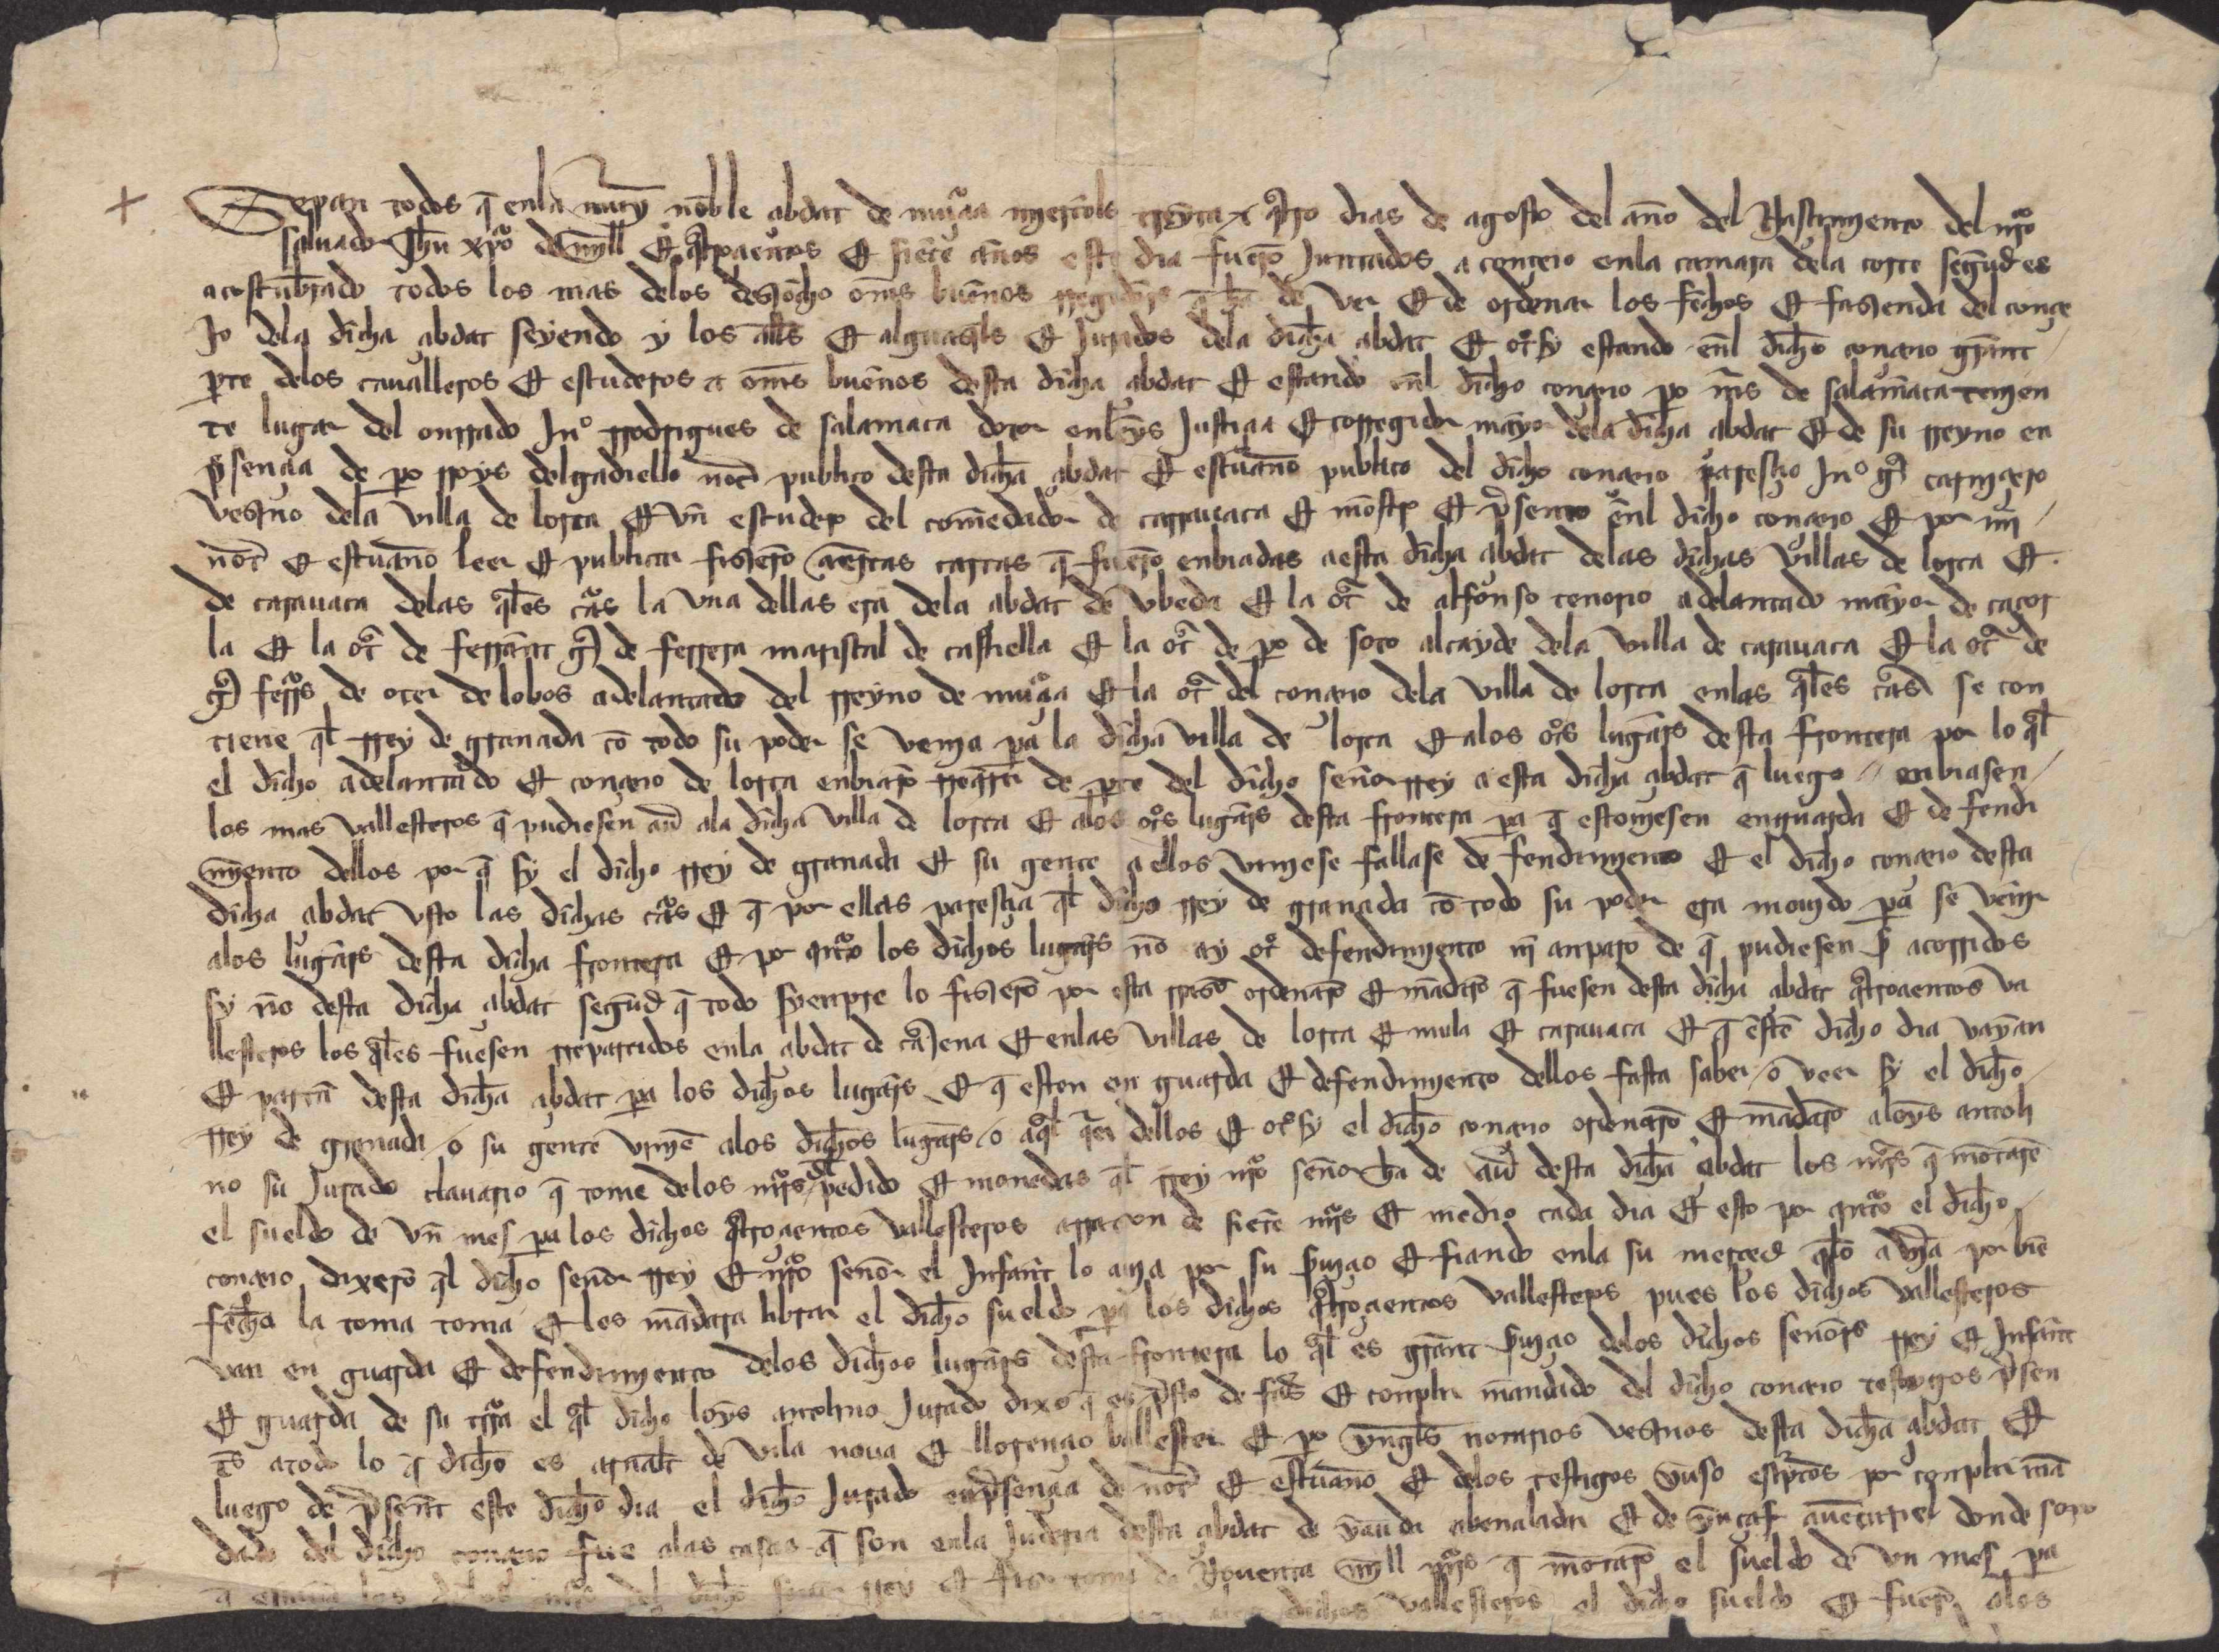 Sepan todos q̄ enla muy noble çibdat de murçia miercoles treynta x q̃tro dias de agosto del año del Nasçimiento del nr̃o
saluador Jhũ xp̃o de mill ⁊ q̃troçientos ⁊ siete años este dia fuerõ Juntados a conçeio enla camara dela corte segũd es
acostũbrado todos los mas delos diesiocho om̃s buenos rregidor̃s q̃ hã de ver ⁊ de ordenar los fechos ⁊ fasienda del conçe
Jo dela dicha çibdat seyendo y los all̃s ⁊ alguasil̃s ⁊ Jurados dela dicha çibdat ⁊ ot̃sy estando enl dicho conçeio grãnt
p̃te delos caualleros ⁊ escuderos ⁊ om̃s buenos desta dicha çibdat ⁊ estando enl dicho conçeio po mr̃s de salamãca tenien
te lugar del onrrado Jnº rrodrigues de salamãca dotor en leyes Justiçia ⁊ corregidor mayor dela dicha çibdat ⁊ de su rreyno en
p̃sençia de po rroys delgadiello not̃ publico desta dicha çibdat ⁊ escriuano publico del dicho conçeio paresçio Jnº gr̃ carniçero
vesino dela villa de lorca ⁊ vñ escudero del comẽdador de carauaca ⁊ mostro ⁊ p̃sento enl dicho conçeio ⁊ por mi
not̃ ⁊ escriuano leer ⁊ publicar fisierõ çiertas cartas q̃ fuerõ enbiadas a esta dicha çibdat delas dichas villas de lorca ⁊
de carauaca delas q̃les cr̃as la vna dellas era dela çibdat de vbeda ⁊ la ot̃ de alfonso tenorio adelantado mayor de caçor
la ⁊ la ot̃ de ferrãnt gr̃ de ferrera mariscal de castiella ⁊ la ot̃ de po de soto alcayde dela villa de carauaca ⁊ la ot̃ de
gr̃ ferrs̃ de oter de lobos adelantado del rreyno de murçia ⁊ la ot̃ del conçeio dela villa de lorca enlas q̃les cr̃as se con
tiene q̃l rrey de granada cõ todo su poder se venia pa la dicha villa de lorca ⁊ alos ot̃s lugar̃s desta frontera por lo q̃l
el dicho adelantado ⁊ conçeio de lorca enbiarõ rreq̃rir de p̃te del dicho señor rrey a esta dicha çibdat q̃ luego enbiasen
los mas vallesteros q̃ pudiesen aũ ala dicha villa de lorca ⁊ alos ot̃s lugar̃s desta frontera pa q̃ estouiesen en guarda ⁊ defendi
miento dellos por q̃ sy el dicho rrey de granada ⁊ su gente a ellos viniese fallase defendimiento ⁊ el dicho conçeio desta
dicha çibdat visto las dichas cr̃as ⁊ q̃ por ellas paresçia q̃l dicho rrey de granada cõ todo su poder era mouido pa se venir
alos lugar̃s desta dicha frontera ⁊ por qñto los dichos lugar̃s nõ ay ot̃ defendimiento ni anparo de q̃ pudiesen s̃ acorridos
sy nõ desta dicha çibdat segũd q̃ todo syenpre lo fisierõ por esta rrasõ ordenarõ ⁊ mãdarõ q̃ fuesen desta dicha çibdat q̃troçientos va
llesteros los q̃les fuesen rrepartidos enla çibdat de cartajena ⁊ enlas villas de lorca ⁊ mula ⁊ carauaca ⁊ q̃ este dicho dia vayan
⁊ partã desta dicha çibdat pa los dichos lugar̃s ⁊ q̃ esten en guarda ⁊ defendimiento dellos fasta saber o veer sy el dicho
rrey de granada o su gente vinie alos dichos lugar̃s o aq̃l q̃er dellos ⁊ ot̃sy el dicho conçeio ordenarõ ⁊ mãdarõ aloys antoli
no su Jurado clauario q̃ tome delos mr̃s del pedido ⁊ monedas q̃l rrey nr̃o señor ha de aũ desta dicha çibdat los mr̃s q̃ mõtarẽ
el sueldo de vñ mes pa los dichos q̃troçientos vallesteros a rraçon de siete mr̃s ⁊ medio cada dia ⁊ esto por qñto el dicho
conçeio dixerõ q̃l dicho señor rrey ⁊ nr̃o señor el Infante lo aũia por su s̃uiçio ⁊ fiando enla su merçed q̃lo aũia por biẽ
fecho la toma toma ⁊ les mãdara librar el dicho sueldo pa los dichos q̃troçientos vallesteros pues los dichos vallesteros
van en guarda ⁊ defendimiento delos dichos lugar̃s desta frontera lo q̃l es grãnt s̃uiçio delos dichos señor̃s rrey ⁊ Infante
⁊ guarda de su trr̃a el q̃l dicho loys antolino Jurado dixo q̃ es p̃sto de faser ⁊ conplir mandado del dicho conçeio testigos p̃sen
tes atodo lo q̃ dicho es arnalt de vila noua ⁊ llorenço ballester ⁊ po notarios vesinos desta dicha çibdat ⁊
luego de p̃sente este dicho dia el dicho Jurado en p̃sençia de not̃ ⁊ escriuano ⁊ delos testigos yuso escriptos por conplir mã
dado del dicho conçeio fue alas casas q̃ son enla Juderia desta çibdat de yauda abenaladar ⁊ de donde
q̃ los dichos mr̃s del dicho señor rrey ⁊ fiso toma de Nouenta mill mr̃s q̃ mõtarõ el sueldo de vn mes pa
dichos vallesteros el dicho sueldo ⁊ fuerõ alos